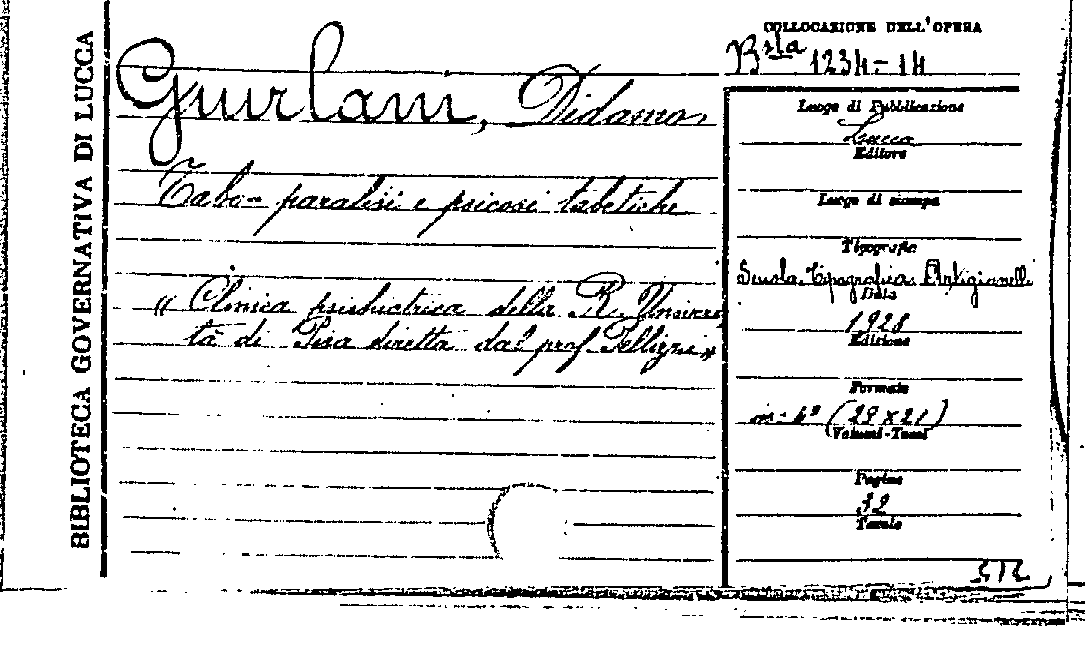 BIBLIOTECA GOVERNATIVA DI LUCCA
COLLOCAZIONE DELL'OPERA
Bsta 1234-14
Giurlani, Didamo
Tabo-paralisi e psicosi tabetiche
"Clinica psichiatrica della R. Universi
tà di Pisa diretta dal prof. Pellizzi"
Luogo di Pubblicazione
Lucca
Editore
Luogo di stampa
Tipografia
Scuola Tipografica Artigianelli
Data
1928
Edizione
Formato
in-4° (29x21)
Volumi-Tomi
Pagine
32
Tavole